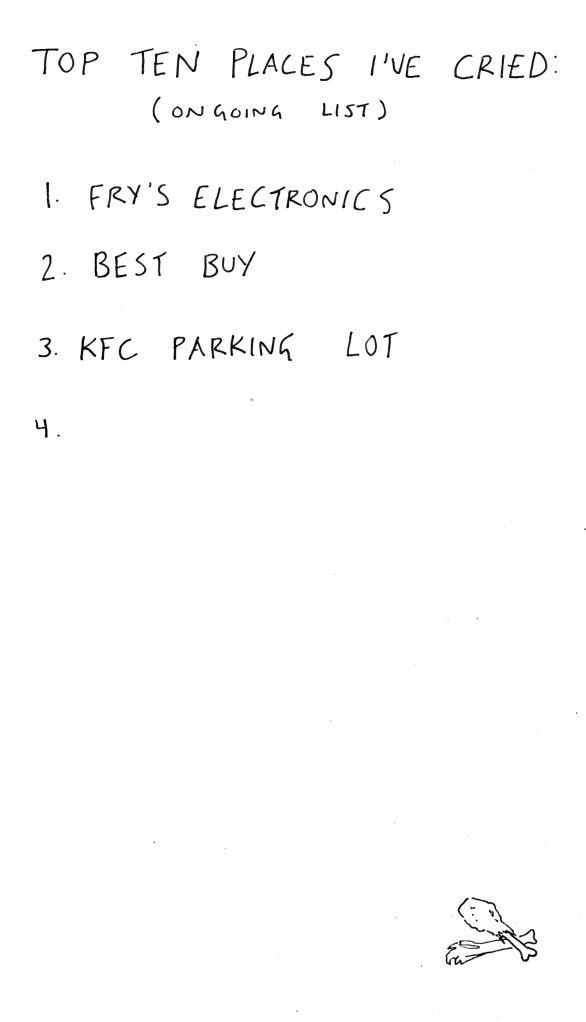 TOP TEN PLACES I'VE CRIED:
(ONGOING LIST)
1. FRY'S ELECTRONICS
2. BEST BUY
3. KFC PARKING LOT
4.